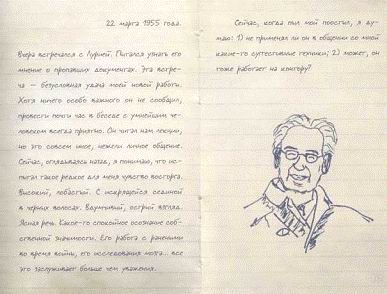 22 марта 1955 года.
Вчера встречался с Лурией. Пытался узнать его
мнение о пропавших документах. Эта встре-
ча – безусловная удача моей новой работы.
Хотя ничего особо важного он не сообщил,
провести почти час в беседе с умнейшим че-
ловеком всегда приятно. Он читал нам лекции,
но это совсем иное, нежели личное общение.
Сейчас, оглядываясь назад, я понимаю, что ис-
пытал такое редкое для меня чувство восторга.
Высокий, лобастый. С искрящейся сединой
в черных волосах. Вдумчивый, острый взгляд.
Ясная речь. Какое-то спокойное осознание соб-
ственной значимости. Его работа с ранеными
во время войны, его исследования мозга.. все
это заслуживает больше чем уважения.
Сейчас, когда пыл мой поостыл, я ду-
маю: 1) не применял ли он в общении со мной
какие-то суггестивные техники; 2) может, он
тоже работает на контору?